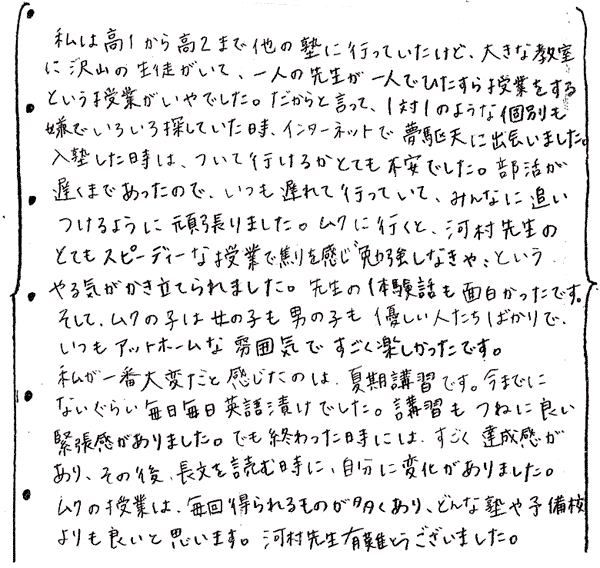 私は高1から高2まで他の塾に行っていたけど、大きな教室
に沢山の生徒がいて、一人の先生が一人でひたすら授業をする
という授業がいやでした。だからと言って、1対1のような個別も
嫌でいろいろ探していた時、インターネットで夢駆天に出会いました。
入塾した時は、ついて行けるかとても不安でした。部活が
遅くまであったので、いつも遅れて行っていて、みんなに追い
つけるように頑張りました。ムクに行くと、河村先生の
とてもスピーディーな授業で焦りを感じ"勉強しなきゃ"という
やる気がかき立てられました。先生の体験話も面白かったです。
そして、ムクの子は女の子も男の子も優しい人たちばかりで、
いつもアットホームな雰囲気ですごく楽しかったです。
私が一番大変だと感じたのは、夏期講習です。今までに
ないぐらい毎日毎日英語漬けでした。講習もつねに良い
緊張感がありました。でも終わった時には、すごく達成感が
あり、その後、長文を読む時に、自分に変化がありました。
ムクの授業は、毎回得られるものが多くあり、どんな塾や予備校
よりも良いと思います。河村先生有難とうございました。